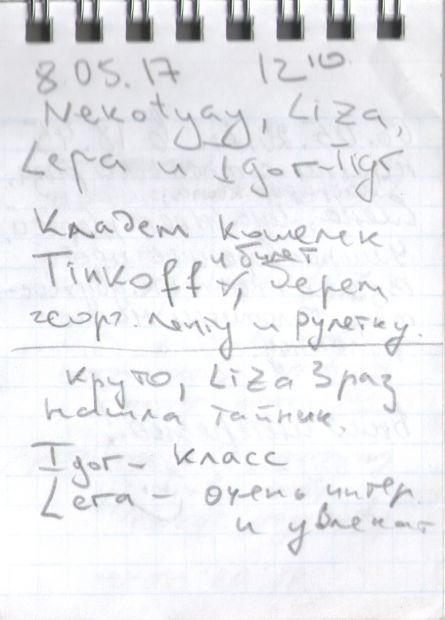 8 05.17 12¹⁰
Nekotyay, Liza,
Lера и Igor-Tigr
Кладем кошелек
и букет
Tinkoff, берем
георг. ленту и рулетку.
Круто, Liza 3 раз
нашла тайник.
Igor - класс
Lera - очень интер.
и увлекат